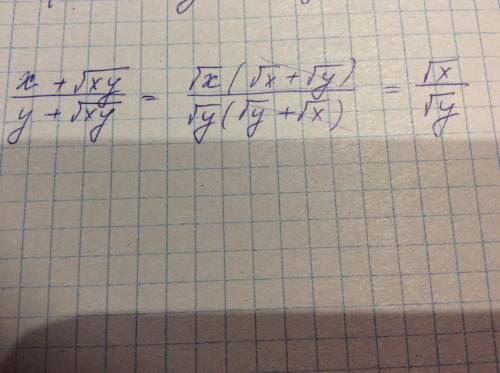 (x + √xy)/(y + √xy) = (√x(√x + √y))/(√y(√y + √x)) = √x/√y